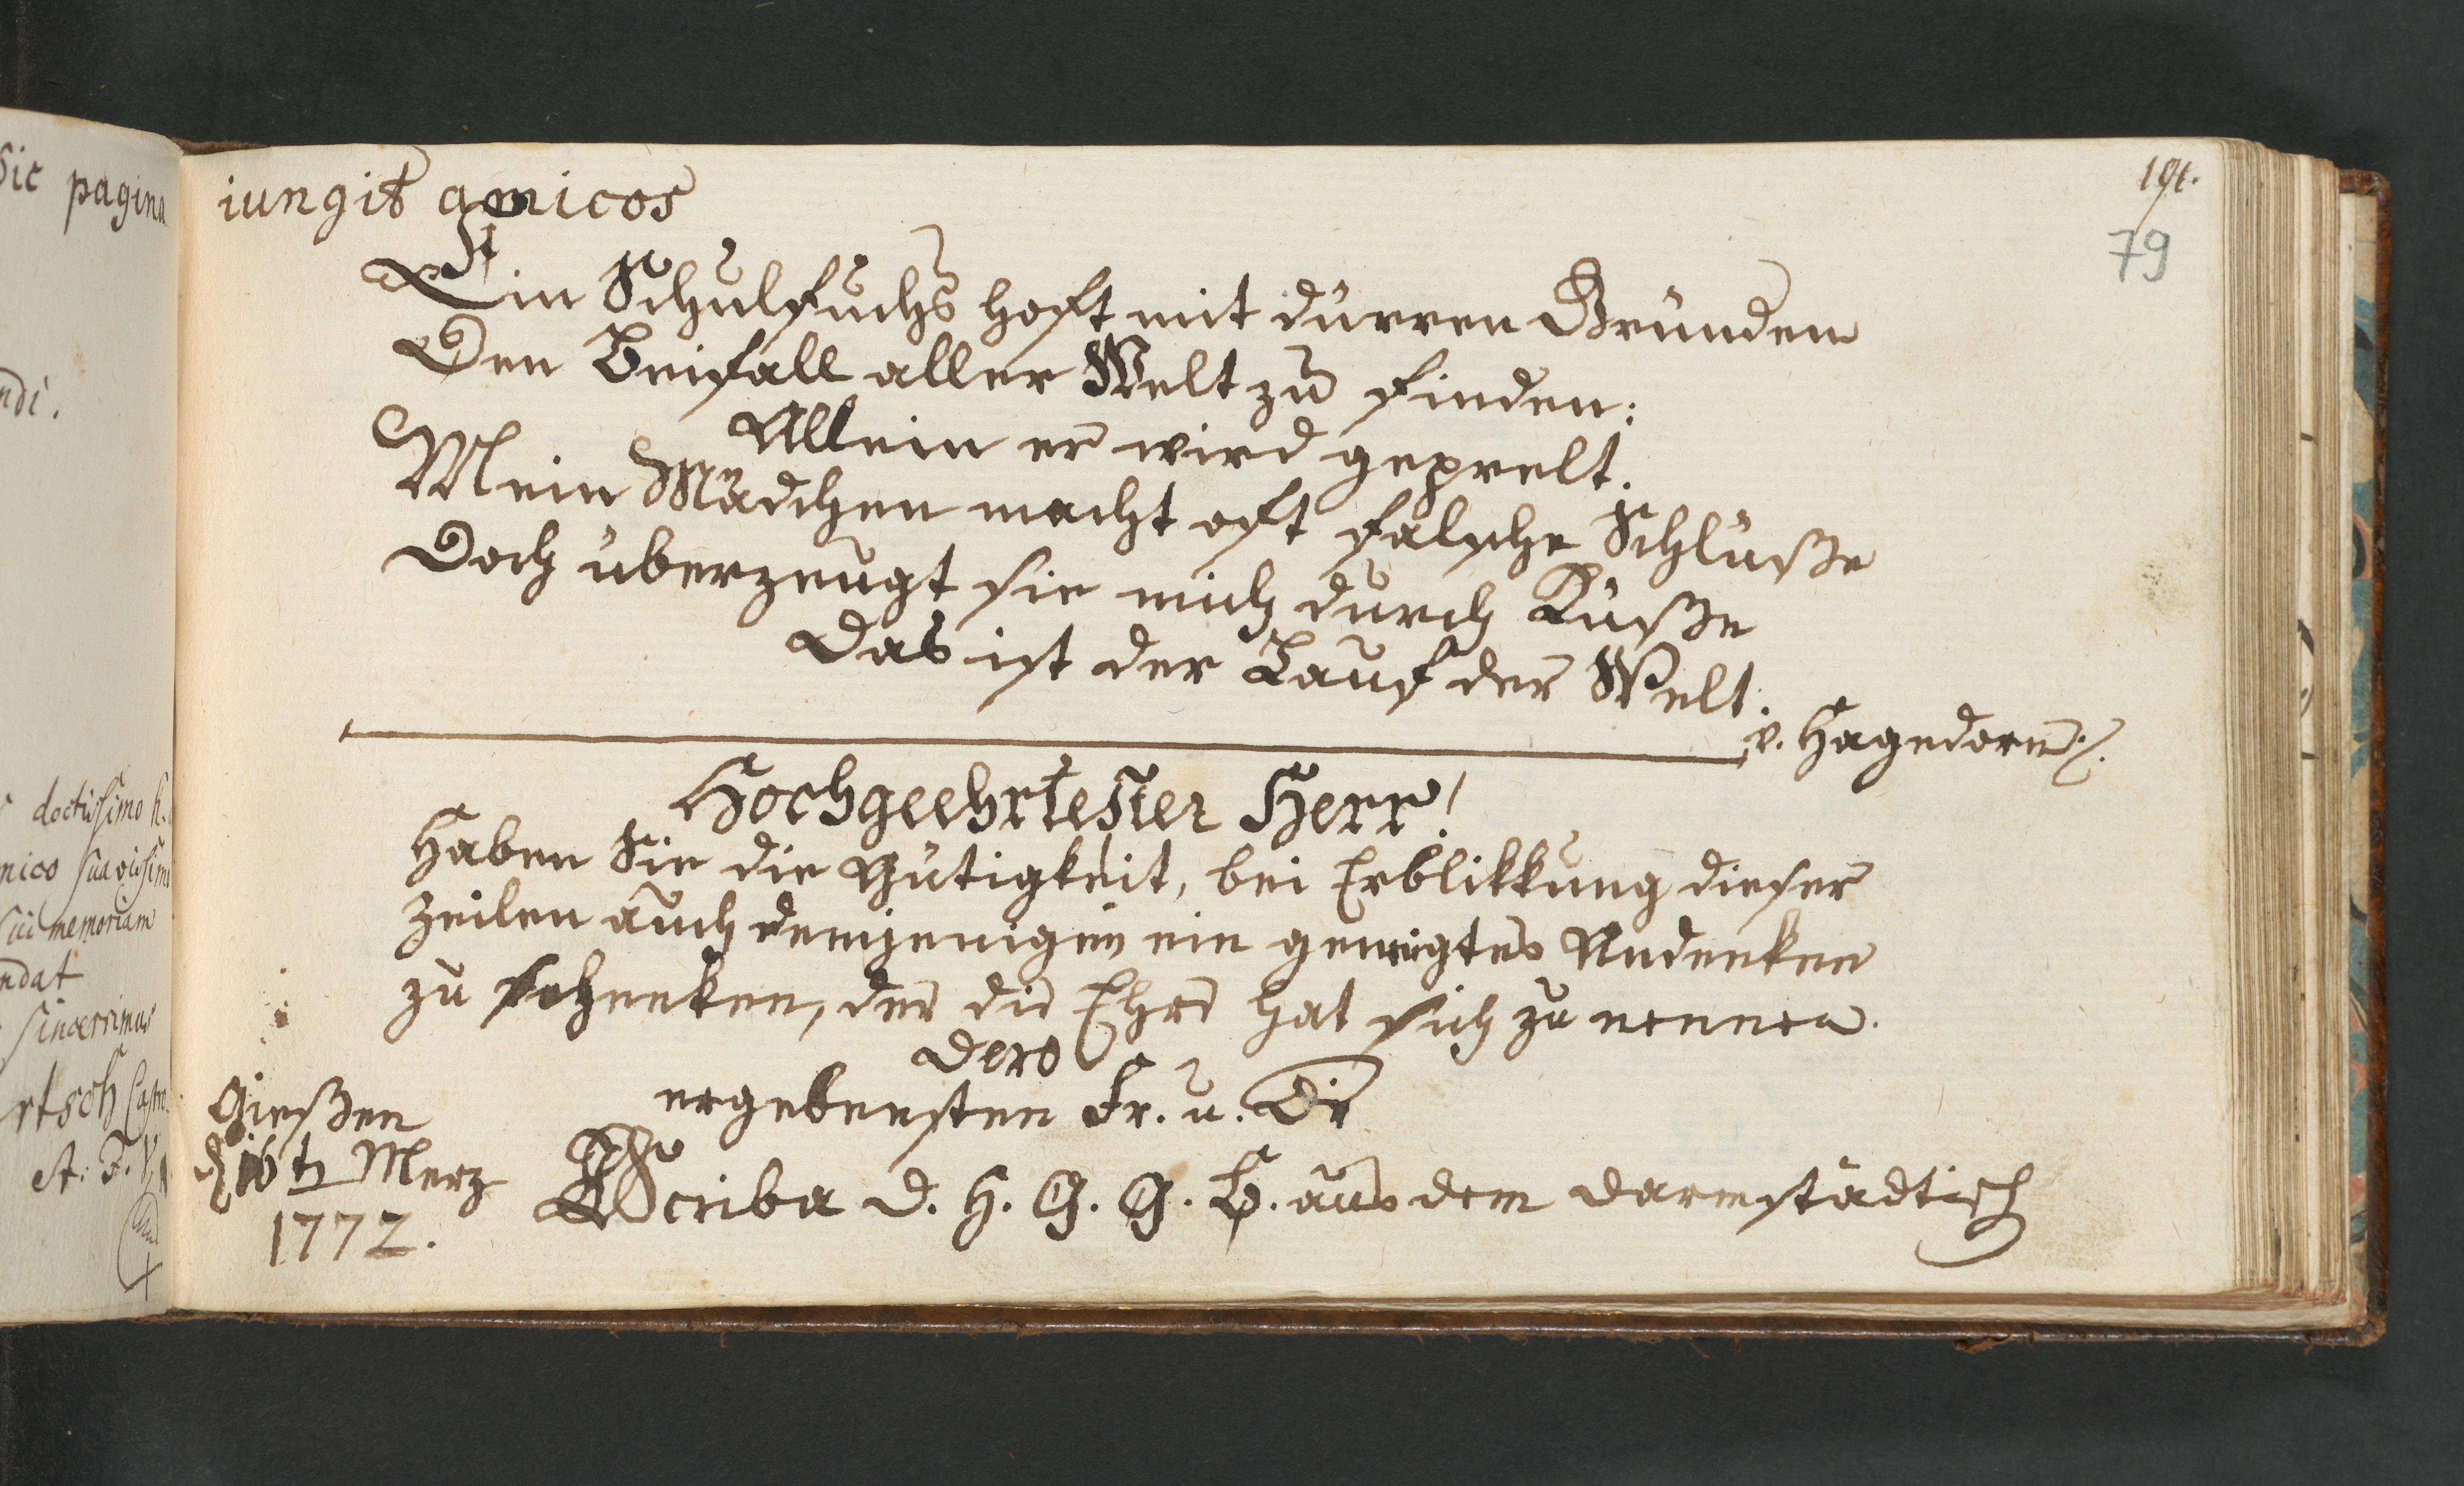 Sic pagina
ndi.
doctissimo
suavissimo
sui memoriam
ndat
sincerrimus
rtsch
iungit amicos
191.
79
Ein Schulfuchs hoft mit dürren Gründen
Den Beifall aller Welt zu finden:
Allein er wird geprelt.
Mein Mädchen macht oft falsche Schlüße
Doch überzeugt sie mich durch Küße
Das ist der Lauf der Welt.
v. Hagedorn.
Hochgeehrtester Herr!
Haben Sie die Gütigkeit, bei Erblikkung dieser
Zeilen auch demjenigen ein geneigtes Andenken
zu schenken, der die Ehre hat sich zu nennen.
Dero
ergebensten Fr. u. Dr
Gießen
d 16t Merz
1772.
Scriba D. H. G. G. B. aus dem Darmstädtisch